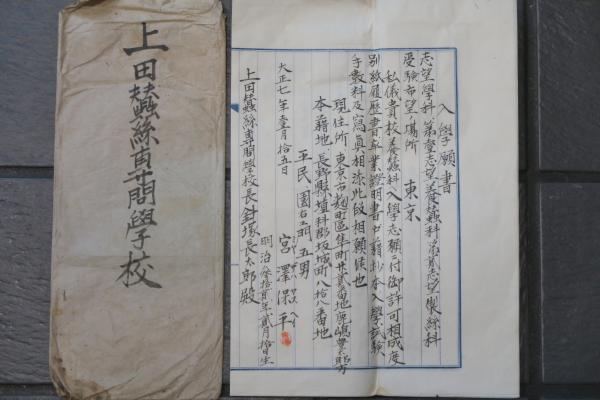 上田蠶絲專門學校
入學願書
志望學科 第壹志望養蠶科 第貳志望製絲科
受驗希望ノ場所 東京
私儀貴校養蠶科ヘ入學志願ニ付御許可相成度
別紙履歷書卒業證明書戶籍抄本入學試驗
手數料及寫眞相添此段相願候也
現住所 東京市麹町區隼町
本籍地 長野縣埴科郡坂城町八拾八番地
平民 五男
宮澤保平
大正七年壹月拾五日
上田蠶絲專門學校長針塚長太郎殿